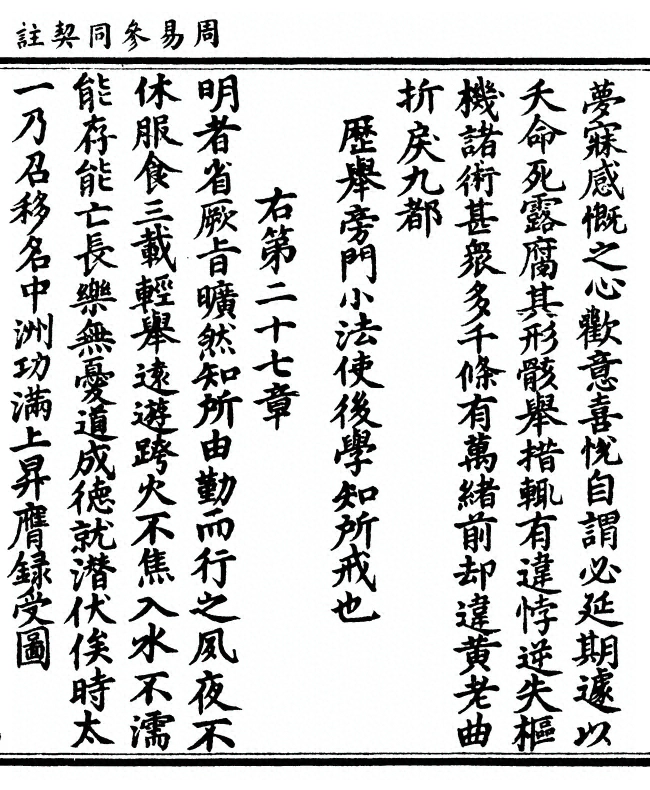 周易參同契註
夢寐感慨之心歡意喜悅自謂必延期遽以
夭命死露腐其形骸舉措輒有違悖逆失樞
機諸術甚衆多千條有萬緒前却違黃老曲
折戾九都
歷舉旁門小法使後學知所戒也
右第二十七章
明者省厥旨曠然知所由勤而行之夙夜不
休服食三載輕舉遠遊跨火不焦入水不濡
能存能亡長樂無憂道成德就潜伏俟時太
一乃召移名中洲功滿上昇膺錄受圖